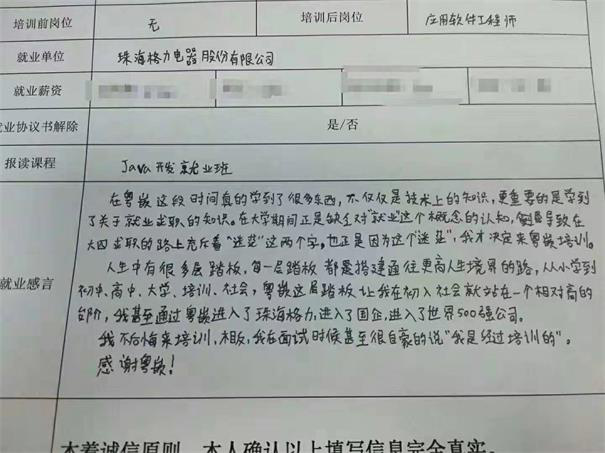 培训前岗位 无 培训后岗位 应用软件工程师
就业单位 珠海格力电器股份有限公司
就业薪资
业协议书解除 是/否
报读课程 Java开发就业班
就业感言
在粤嵌这段时间真的学到了很多东西，不仅仅是技术上的知识，更重要的是学到
了关于就业求职的知识。在大学期间正是缺乏对"就业"这个概念的认知，倒是导致在
大四求职的路上充斥着"迷茫"这两个字。也正是因为这个"迷茫"，我才决定来粤嵌培训。
人生中有很多层踏板，每一层踏板都是搭建通往更高人生境界的路，从小学到
初中、高中、大学、培训、社会，粤嵌这层踏板让我在初入社会就站在一个相对高的
台阶，我甚至通过粤嵌进入了珠海格力，进入了国企，进入了世界500强公司。
我不后悔来培训，相反，我在面试时候甚至很自豪的说"我是经过培训的"。
感谢粤嵌！
本着诚信原则，本人确认以上填写信息完全真实。